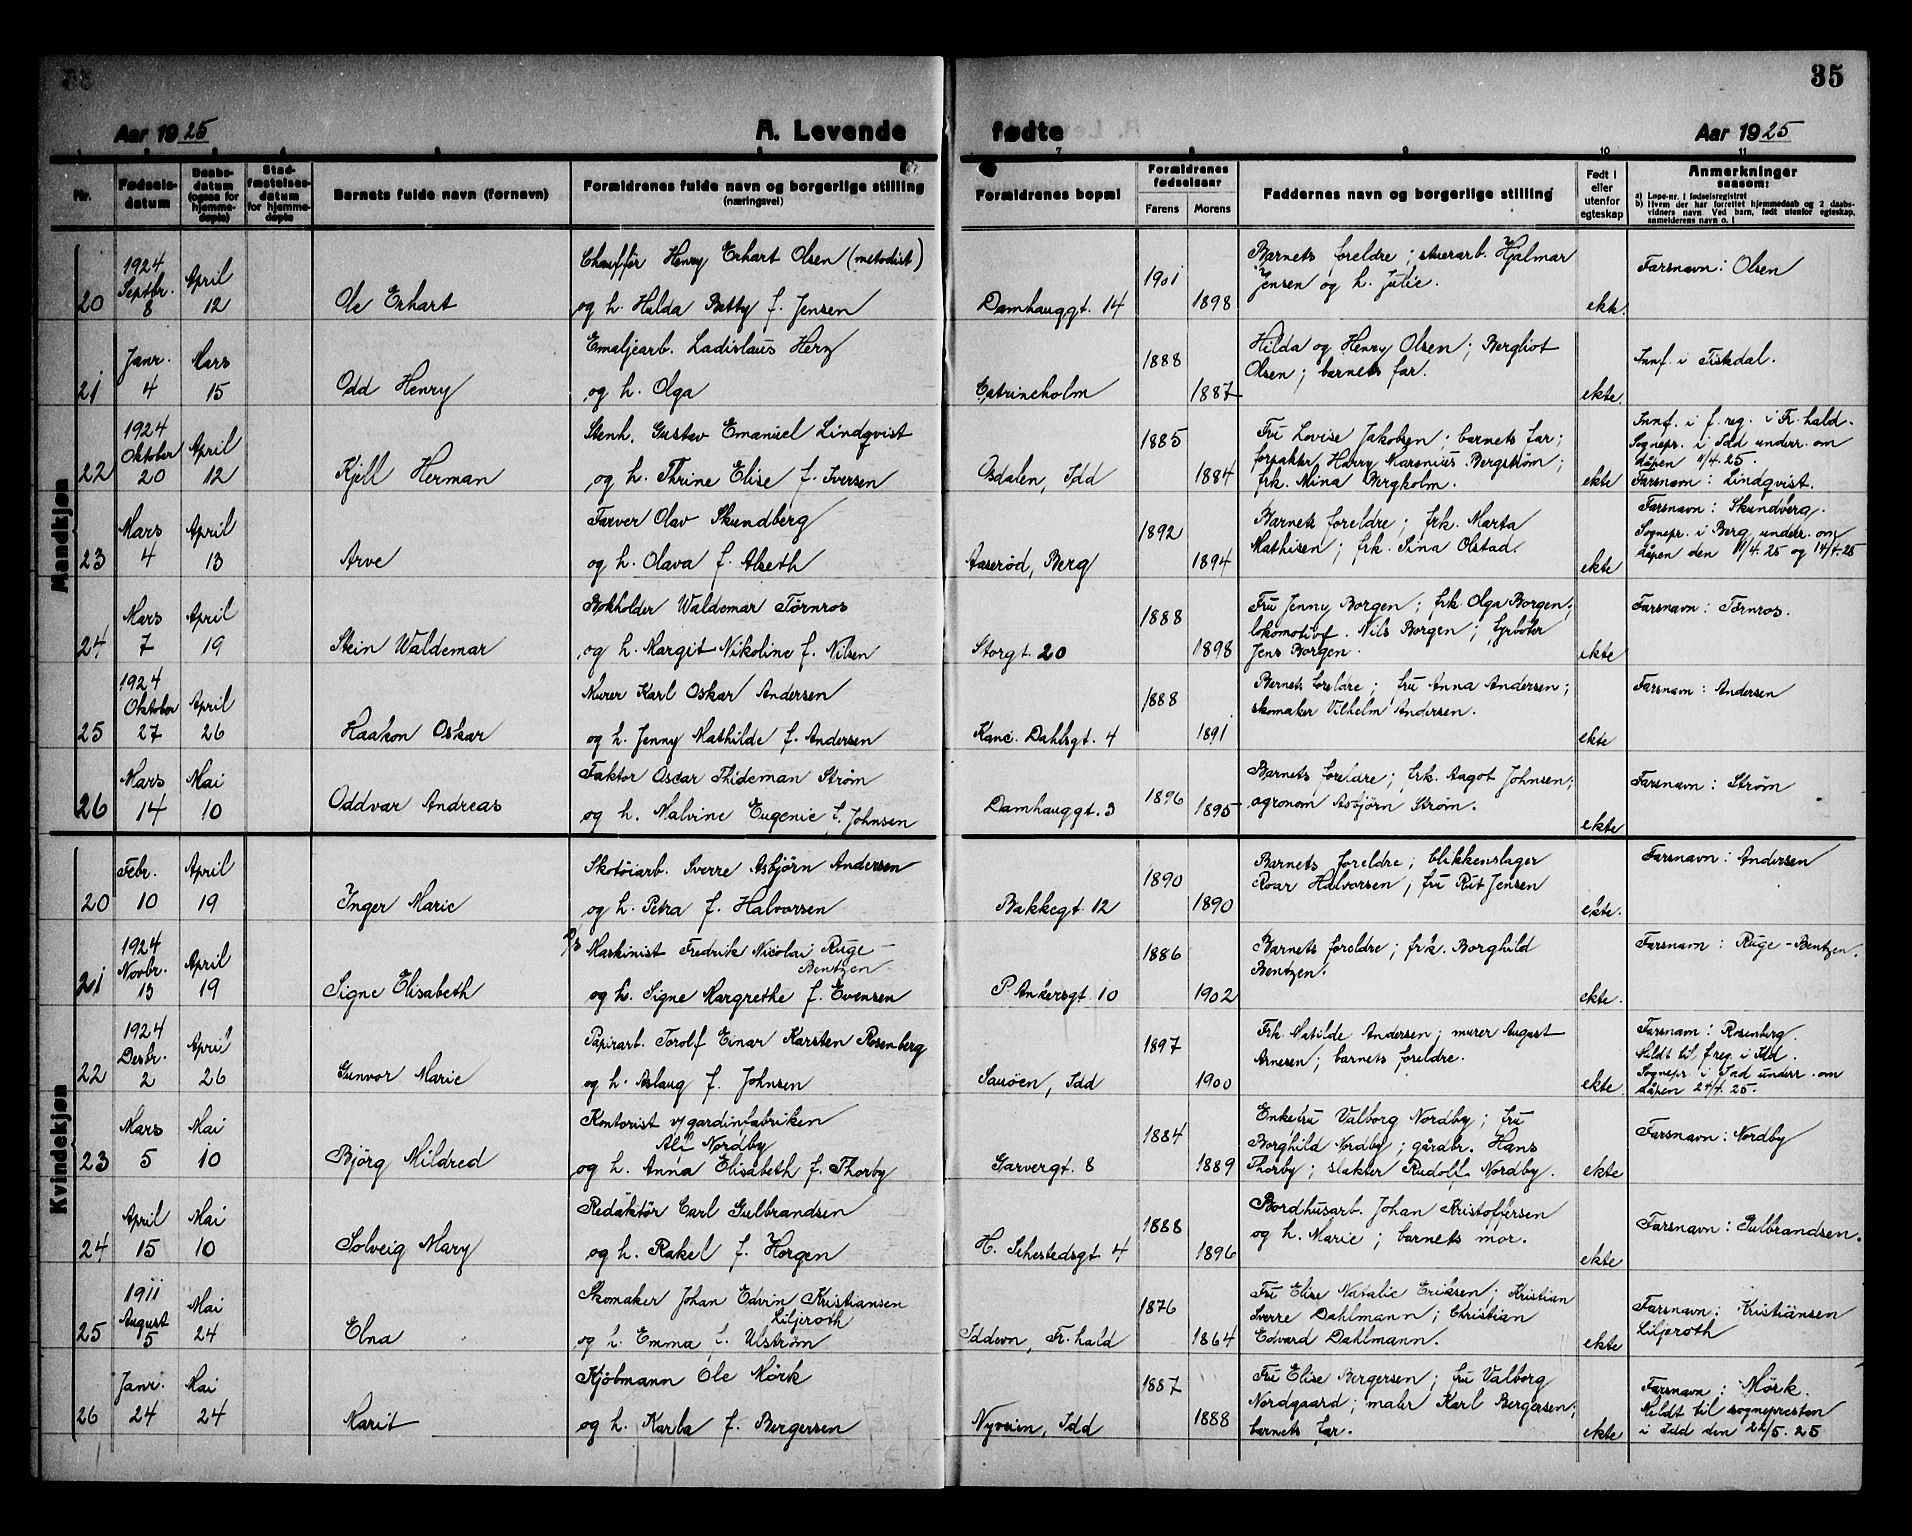 35
Aar 1925 A. Levende fødte Aar 1925
1 2 3 4 5 6 7 8 9 10 11
Nr.
Fødsels-
datum
Daabs-
datum
(ogsaa for
hjemme-
døpte)
Stad-
fæstelses-
datum
for hjemme-
døpte
Barnets fulde navn (fornavn)
Forældrenes fulde navn og borgerlige stilling
(næringsvei)
Forældrenes bopæl
Forældrenes
fødselsaar
Farens Morens
Faddernes navn og borgerlige stilling
Født i
eller
utenfor
egteskap
Anmerkninger
saasom:
a) Løpe-nr. i fødselsregistret
b) Hvem der har forrettet hjemmedaab og 2 daabs-
vidners navn. Ved barn, født utenfor egteskap,
anmelderens navn o. l.
Mandkjøn
20
1924
Septbr.
8
April
12
Ole Erhart
Chauffør Henry Erhart Olsen (metodist)
og h. Hilda Betty f. Jensen
Damhauggt. 14
1901
1898
Barnets foreldre; stuerarb. Hjalmar
Jensen og h. Julie.
ekte.
Farsnavn: Olsen
21
Janr.
4
Mars
15
Odd Henry
Emaljearb. Ladislaus Herz
og h. Olga
Catrineholm
1888
1887
Hilda og Henry Olsen; Bergliot
Olsen; barnets far.
ekte.
Innf. i Tistedal.
22
1924
Oktober
20
April
12
Kjell Herman
Stenh. Gustav Emanuel Lindqvist
og h. Thrine Elise f. Iversen
Asdalen, Idd
1885
1884
Fru Lovise Jakobsen. barnets far;
forpakter Harry Marenius Bergstrøm;
frk. Mina Bergholm.
ekte
Innf. i f. reg. i Fr.hald.
Sognepr. i Idd underr. om
dåpen 11/4.25.
Farsnavn: Lindqvist.
23
Mars
4
April
13
Arve
Farver Olav Skundberg
og h. Olava f. Alseth
Aaserød, Berg
1892
1894
Barnets foreldre; frk. Marta
Mathisen; frk. Sina Olstad.
ekte
Farsnavn: Skundberg.
Sognepr. i Berg underr. om
dåpen den 11/4.25 og 14/4.25
24
Mars
7
April
19
Stein Waldemar
Bokholder Waldemar Törnros
og h. Margit Nikoline f. Nilsen
Storgt. 20
1888
1898
Fru Jenny Borgen; frk. Olga Borgen;
lokomotivf. Nils Borgen; fyrbøter
Jens Borgen.
ekte
Farsnavn: Törnros.
25
1924
Oktober
27
April
26
Haakon Oskar
Murer Karl Oskar Andersen
og h. Jenny Mathilde f. Andersen
Kanc. Dahlsgt. 4
1888
1891
Barnets foreldre; fru Anna Andersen;
skomaker Vilhelm Andersen.
ekte
Farsnavn: Andersen
26
Mars
14
Mai
10
Oddvar Andreas
Faktor Oscar Thideman Strøm
og h. Malvine Eugenie f. Johnsen
Damhauggt. 3
1896
1895
Barnets foreldre; frk. Aagot Johnsen;
agronom Asbjörn Strøm.
ekte
Farsnavn: Strøm
Kvindekjøn
20
Febr.
10
April
19
Inger Marie
Skotøiarb. Sverre Asbjørn Andersen
og h. Petra f. Halvorsen
Bakkegt. 12
1890
1890
Barnets foreldre; blikkenslager
Roar Halvorsen; fru Rut Jensen
ekte.
Farsnavn: Andersen
21
1924
Novbr.
13
April
19
Signe Elisabeth
Maskinist Fredrik Nicolai Ruge-
Bentzen
og h. Signe Margrethe f. Evensen
P. Ankersgt. 10
1886
1902
Barnets foreldre; frk. Borghild
Bentzen.
ekte.
Farsnavn: Ruge-Bentzen.
22
1924
Desbr.
2
April
26
Gunvor Marie
Papirarb. Torolf Einar Karsten Rosenberg
og h. Aslaug f. Johnsen
Sauöen, Idd
1897
1900
Frk. Matilde Andersen; murer August
Arnesen; barnets foreldre.
ekte
Farsnavn: Rosenberg.
Meldt til f. reg. i Idd.
Sognepr. i Idd underr. om
dåpen 24/4.25.
23
Mars
5
Mai
10
Bjørg Mildred
Kontorist v/gardinfabriken
Alf Nordby
og h. Anna Elisabeth f. Thorby
Garvergt. 8
1884
1889
Enkefru Valborg Nordby; fru
Borghild Nordby; gårdbr. Hans
Thorby; slakter Rudolf Nordby.
ekte
Farsnavn: Nordby
24
April
15
Mai
10
Solveig Mary
Redaktør Carl Gulbrandsen
og h. Rakel f. Horgen
H. Sehestedsgt. 4
1888
1896
Bordhusarb. Johan Kristoffersen
og h. Marie; barnets mor.
ekte
Farsnavn: Gulbrandsen.
25
1911
August
5
Mai
24
Elna
Skomaker Johan Edvin Kristiansen
Liljeroth
og h. Emma f. Ulstrøm
Iddevn, Fr.hald
1876
1864
Fru Elise Natalie Eriksen; Kristian
Sverre Dahlmann; Christian
Edvard Dahlmann.
ekte
Farsnavn: Kristiansen
Liljeroth
26
Janr.
24
Mai
24
Marit
Kjøbmann Ole Mörk
og h. Karla f. Bergersen
Nyveien, Idd
1887
1888
Fru Elise Bergersen; fru Valborg
Nordgaard; maler Karl Bergersen;
barnets far.
ekte
Farsnavn: Mörk.
Meldt til sognepresten
i Idd den 22/5.25